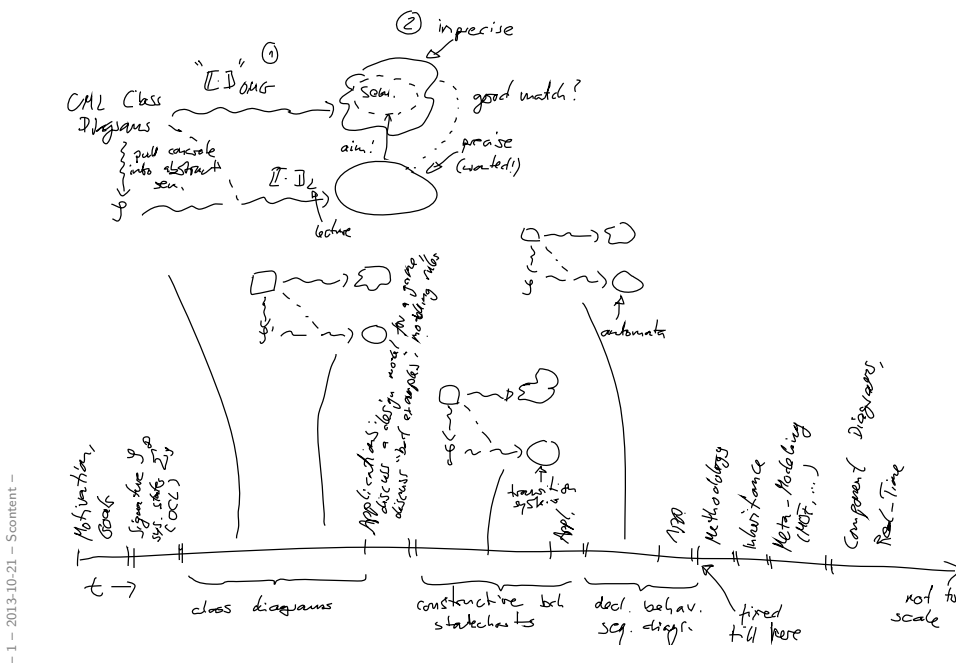 ② imprecise
①
"⟦·⟧"OMG
UML Class
Diagrams
sem.
good match?
aim!
precise
(wanted!)
pull concrete
into abstract
sem.
⟦·⟧L
lecture
automata
transition
system
Motivation,
Goals
Signature 𝒮
sys. states
(OCL)
Application:
discuss a design model for a game,
discuss "bad examples", modeling rules
Appl.
App.
Methodology
Inheritance
Meta-Modeling
(MOF, ...)
Component Diagrams,
Real-Time
t →
class diagrams
constructive beh
statecharts
decl. behav.
seq. diagr.
fixed
till here
not to
scale
– 1 – 2013-10-21 – Scontent –